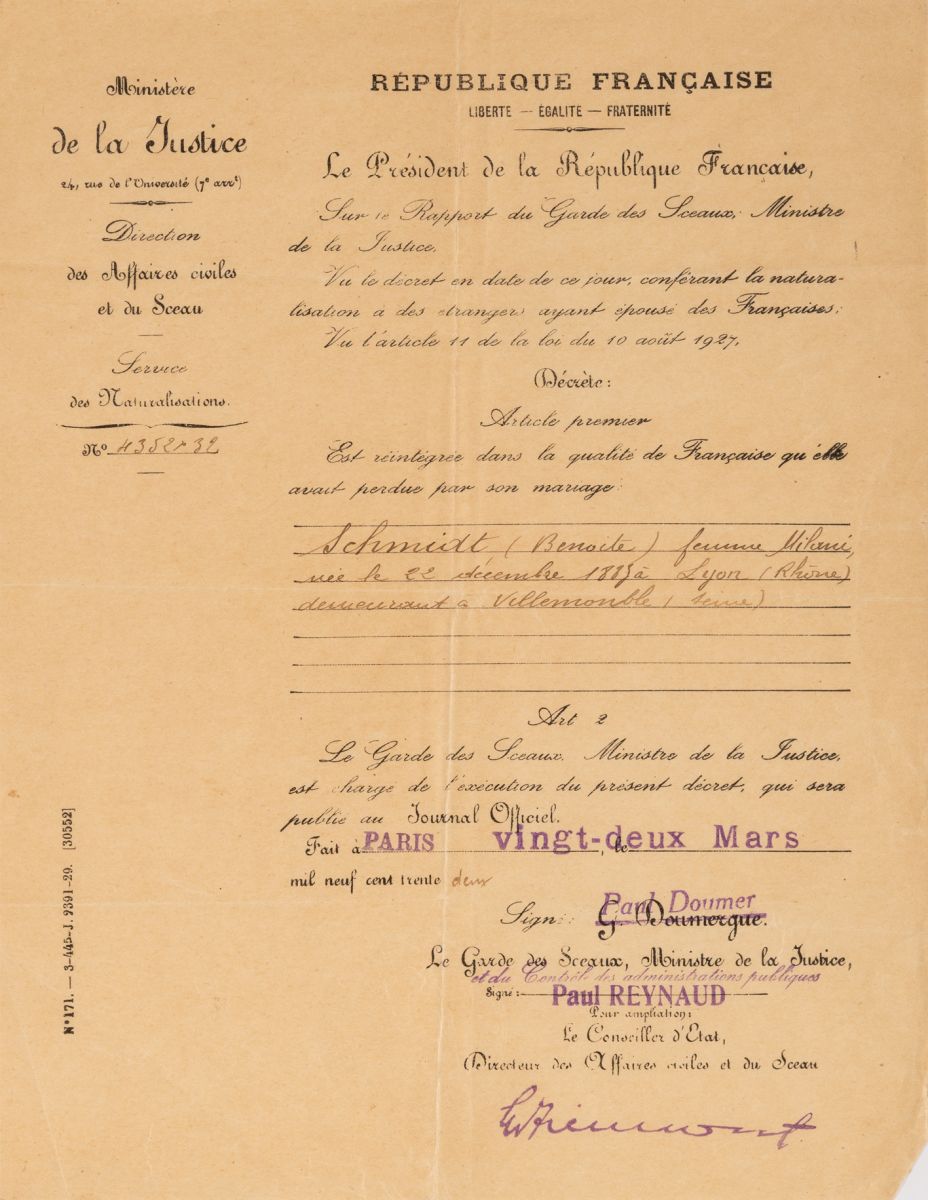 Ministère
de la Justice
24, rue de l'Université (7e arrt)
Direction
des Affaires civiles
et du Sceau
Service
des Naturalisations.
No 4352 32
RÉPUBLIQUE FRANÇAISE
LIBERTÉ — ÉGALITÉ — FRATERNITÉ
Le Président de la République Française,
Sur le Rapport du Garde des Sceaux, Ministre
de la Justice,
Vu le décret en date de ce jour, conférant la natura-
lisation à des étrangers ayant épousé des Françaises;
Vu l'article 11 de la loi du 10 août 1927,
Décrète:
Article premier
Est réintégrée dans la qualité de Française qu'elle
avait perdue par son mariage:
Schmidt (Benoite) femme Milani,
née le 22 décembre à Lyon (Rhône)
demeurant à Villemonble (Seine)
Art 2
Le Garde des Sceaux, Ministre de la Justice,
est chargé de l'exécution du présent décret, qui sera
publié au Journal Officiel.
Fait à PARIS, le vingt-deux Mars
mil neuf cent trente deux
Paul Doumer
Signé: G. Doumergue.
Le Garde des Sceaux, Ministre de la Justice,
et du Contrôle des administrations publiques
Signé: Paul REYNAUD
Pour ampliation:
Le Conseiller d'Etat,
Directeur des Affaires civiles et du Sceau
N° 171. — 3-445-J. 2391-29. [30552]